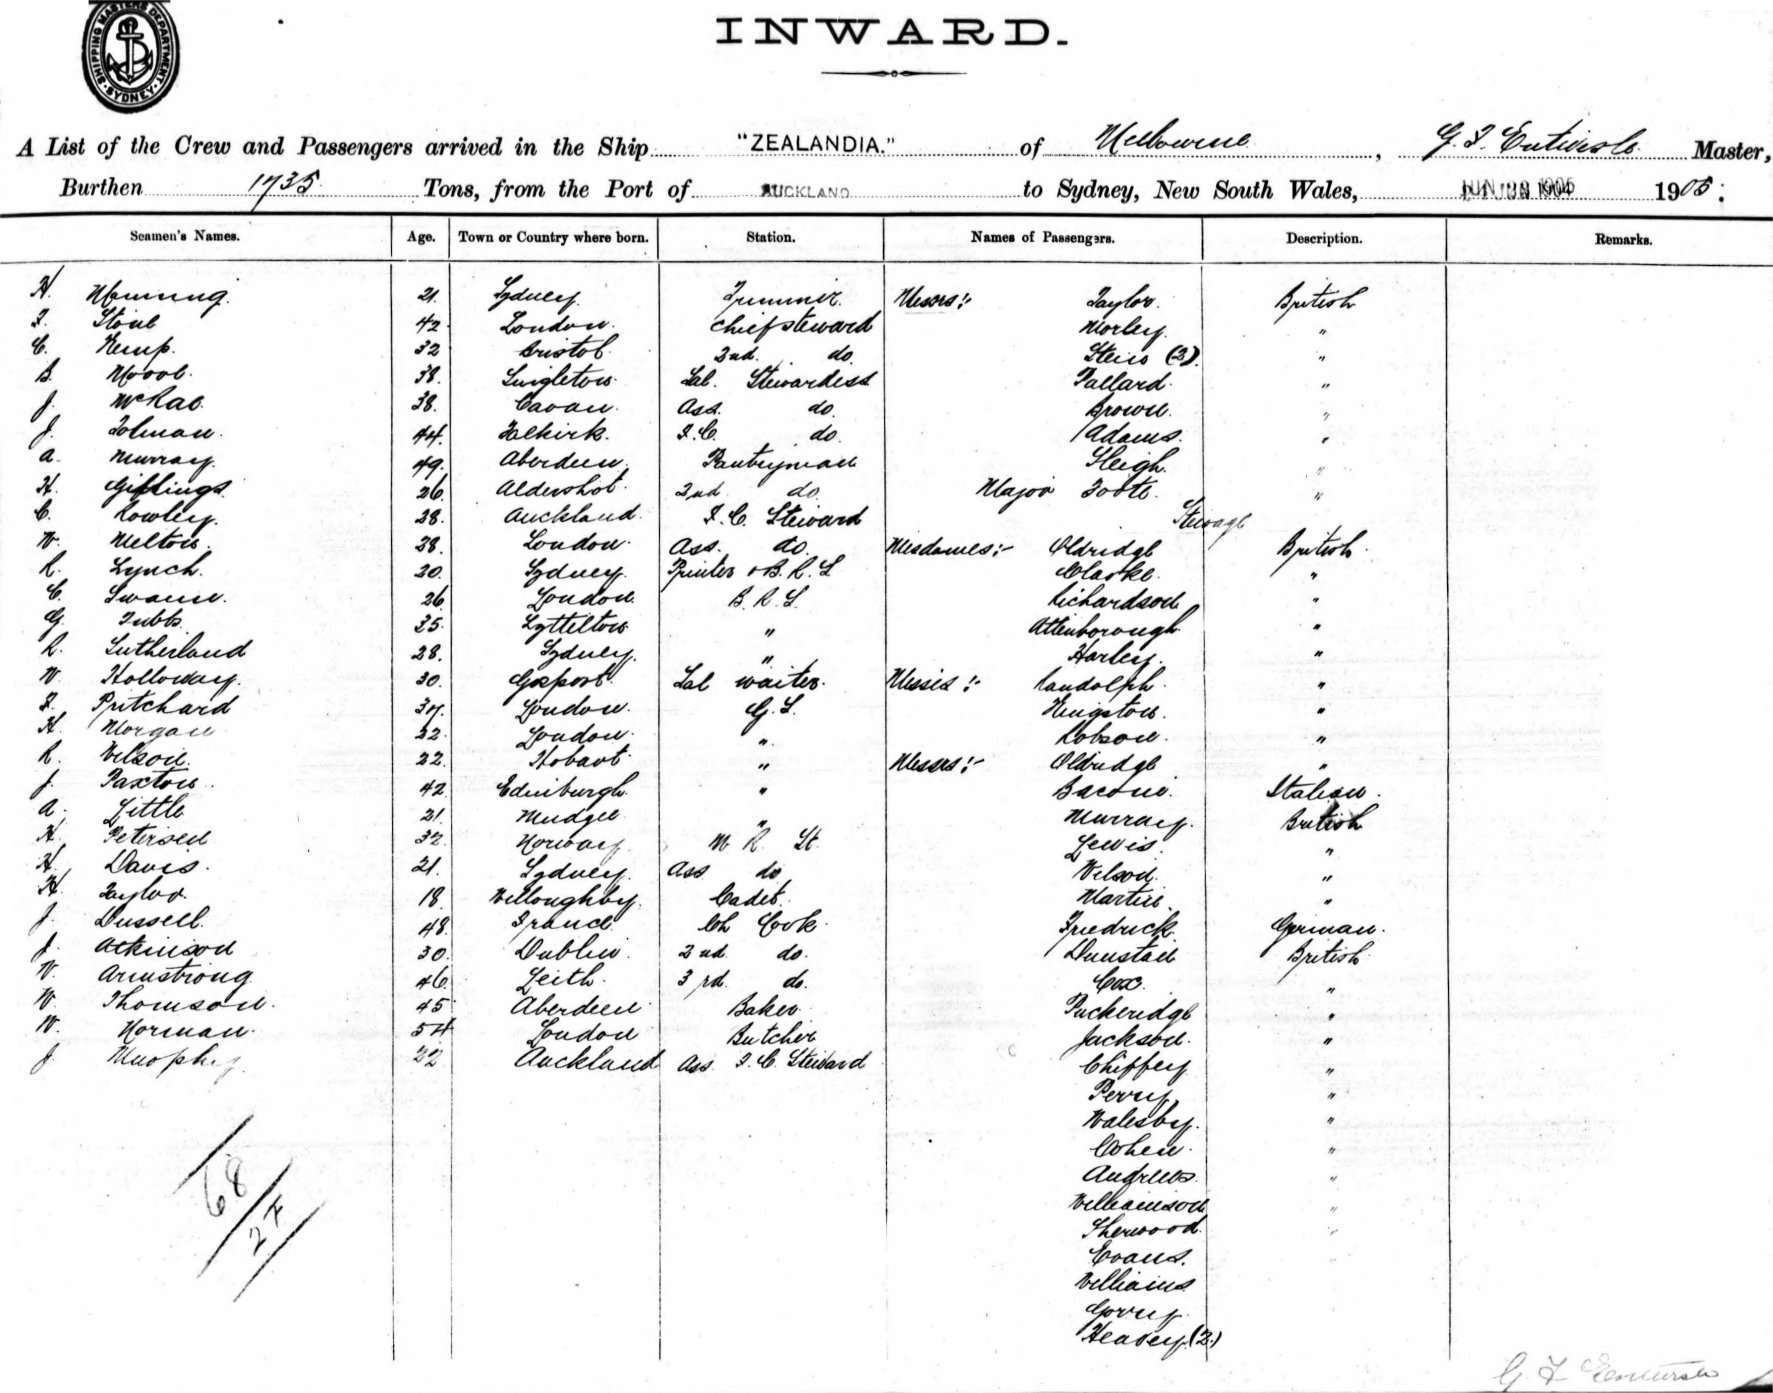 SHIPPING MASTERS DEPARTMENT SYDNEY
INWARD.
A List of the Crew and Passengers arrived in the Ship "ZEALANDIA." of Melbourne, G. F. Entwisle Master,
Burthen 1735 Tons, from the Port of AUCKLAND to Sydney, New South Wales, 1905:
Seamen's Names. Age. Town or Country where born. Station. Names of Passengers. Description. Remarks.
H. 21. Sydney. Trimmer. Messrs:- Taylor. British
F. 42 London. Chief steward Morley. "
C. Kemp. 32 Bristol. 2nd. do. (2). "
B. 38. Singleton. Sal. Stewardess "
J. McRae. 38. Cavan. Ass. do. Brown. "
J. Tolman. 44. Falkirk. F.C. do. Adams. "
A. Murray. 49. Aberdeen. Pantryman Sleigh. "
H. Giffings. 26. Aldershot. 2nd do. Major Foote. "
C. Rowley. 28. Auckland. F.C. Steward Steerage
W. Melton. 28. London. Ass. do. Mesdames:- Oldridge British.
R. Lynch. 30. Sydney. Printer & B.R.S. Clarke. "
C. Swann. 26. London. B.R.S. Richardson "
G. Tubbs 35. Lyttelton " Attenborough "
R. Sutherland 28. Sydney. " Harley. "
W. Holloway. 30. Gosport. Sal waiter. Misses:- Randolph. "
F. Pritchard London. G.S. Kingston. "
H. Morgan 22. London. " Robson. "
R. Wilson. 22. Hobart. " Messrs:- Oldridge "
J. Paxton. 42. Edinburgh " Italian.
A. Little 21. Mudgee " Murray. British
H. Petersen 32. Norway. M R St. Lewis. "
H. Davis. 21. Sydney. Ass do Wilson. "
H. Taylor. 18. Willoughby. Cadet. Martin. "
J. Dussell. 48. France. Ch Cook. Friedrick. German.
J. Atkinson 30. Dublin. 2nd do. Dunstan British
W. Armstrong 46. Leith. 3rd. do. Cox. "
W. Thomson. 45 Aberdeen. Baker. Puckeridge "
W. Norman. 54 London Butcher Jackson. "
J. Murphy 22 Auckland Ass. F.C. Steward Chiffey "
Perry. "
Walesby. "
Cohen. "
Andrews. "
Williamson "
Sherwood. "
Evans.
Williams
Gorry.
Heavey. (2.)
68
27
G. F. Entwisle